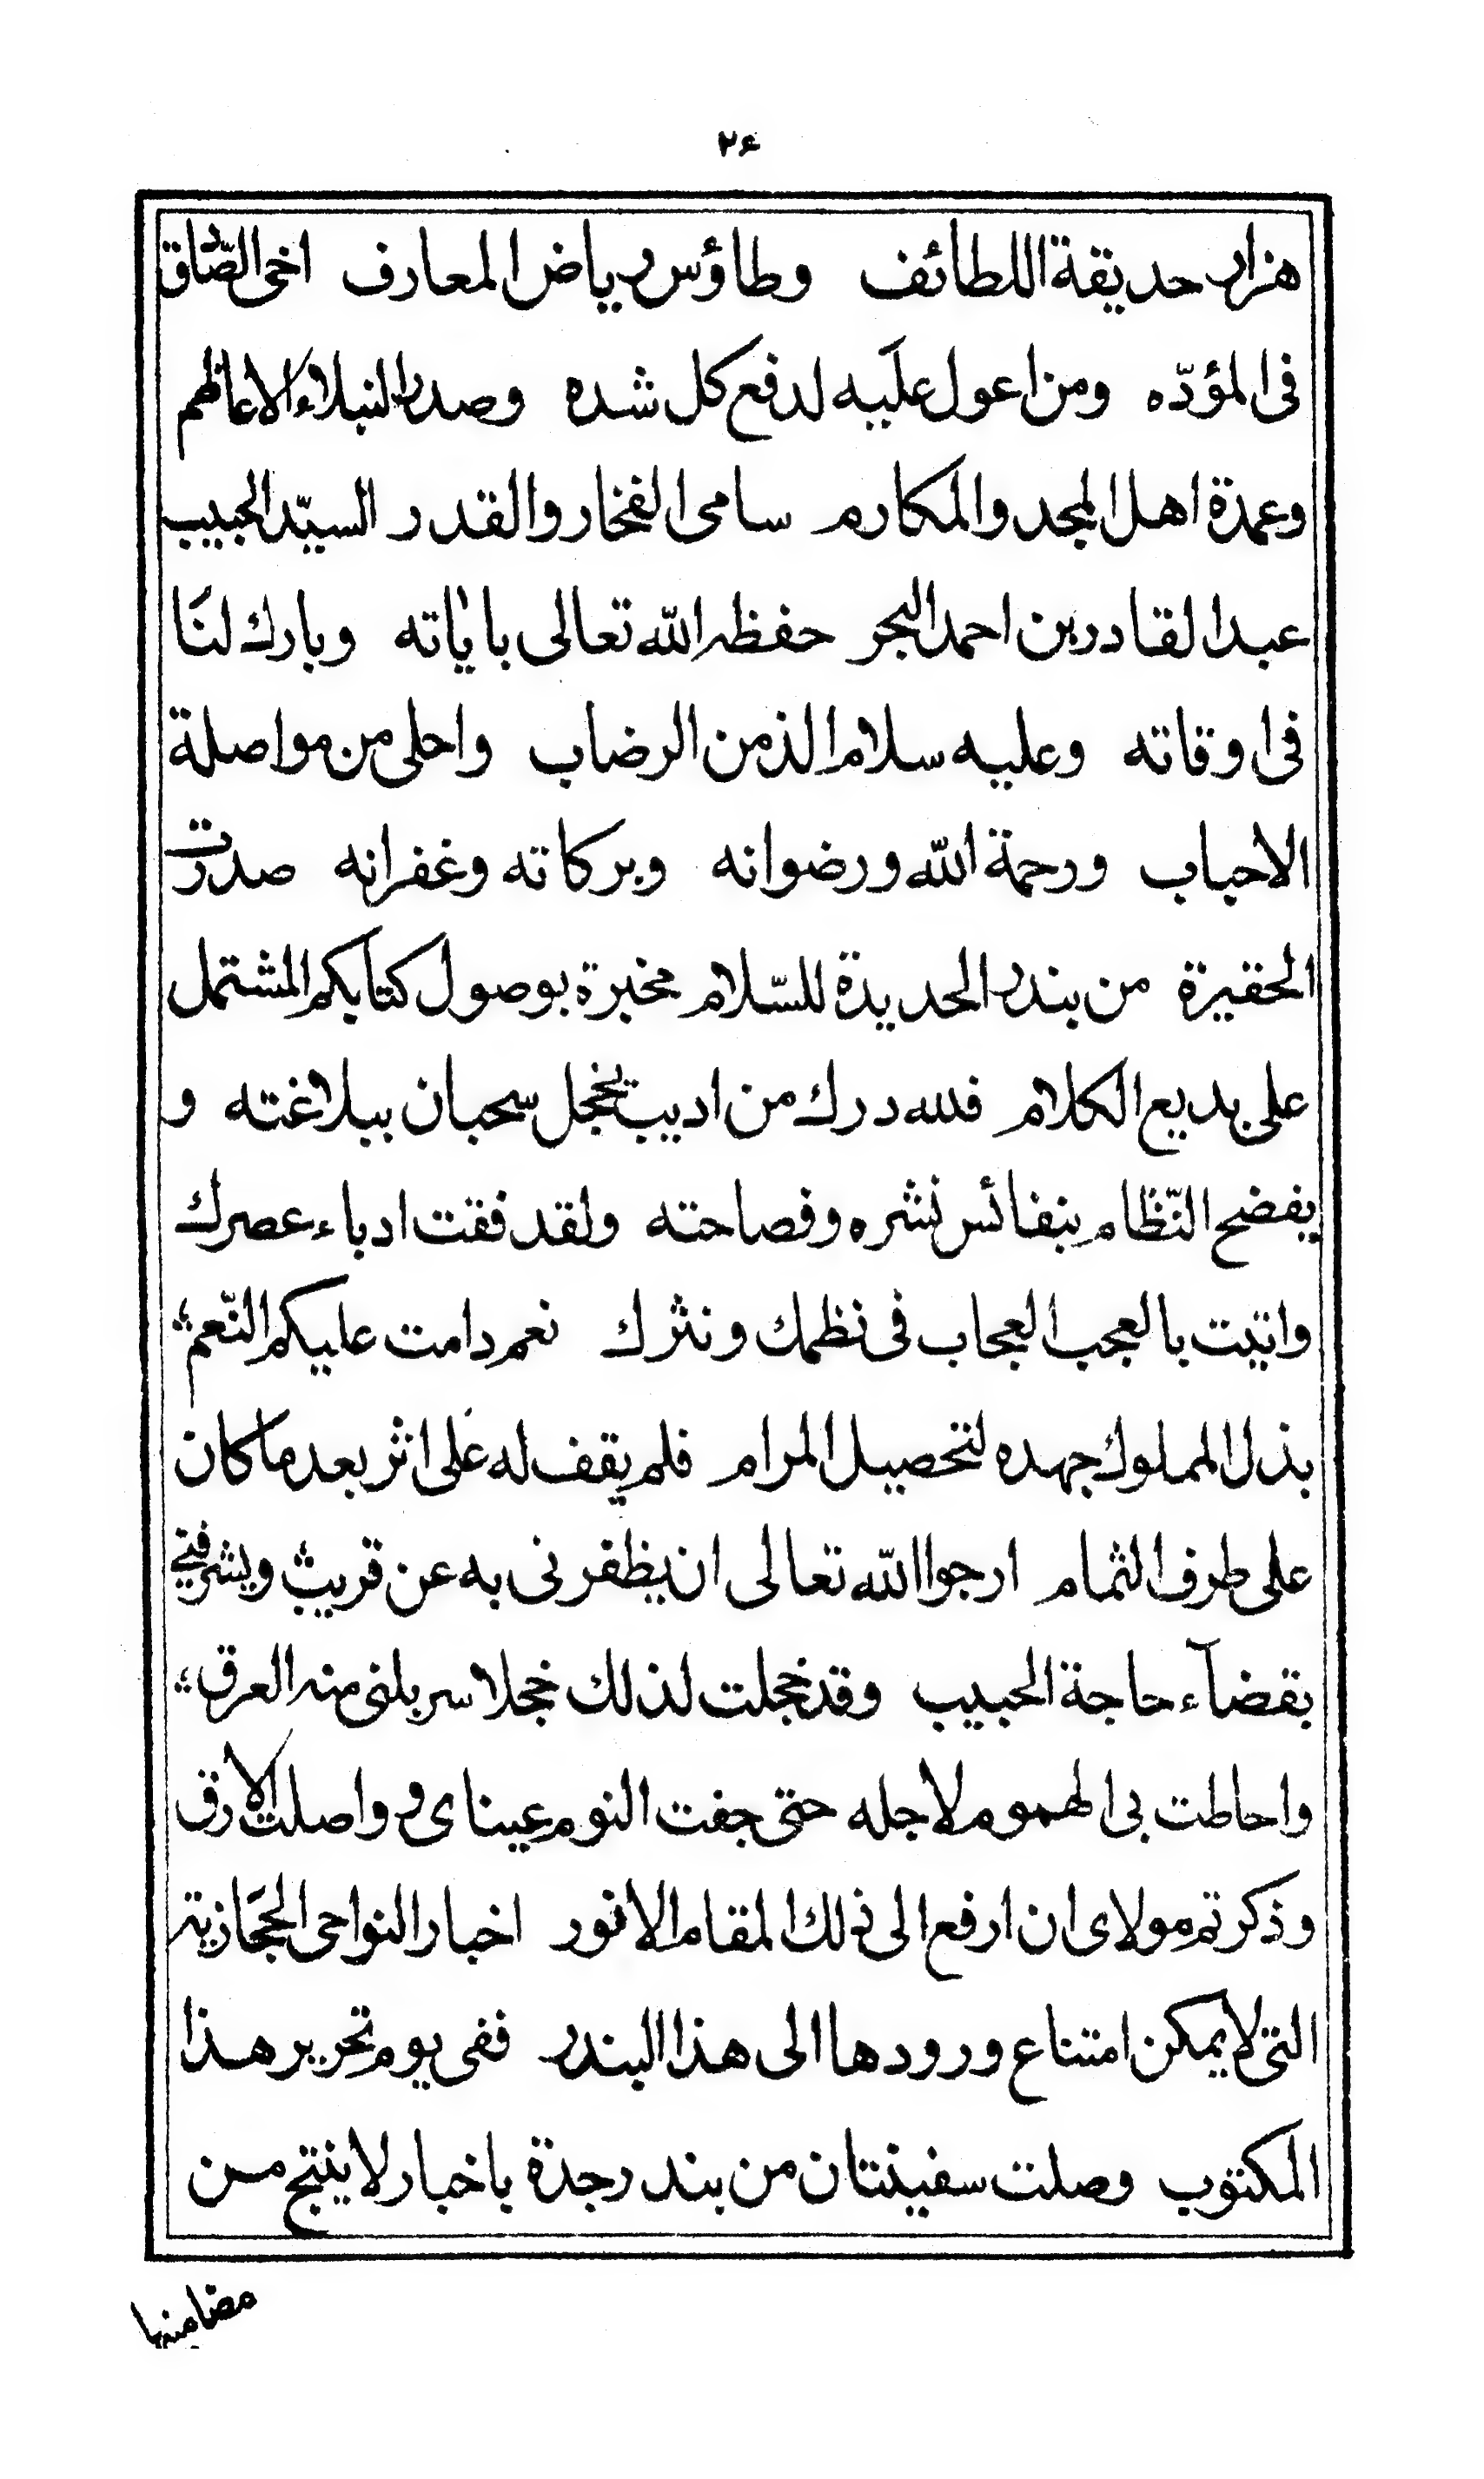 ۲۶
هزار حديقة اللطائف وطاؤس رياض المعارف اخى الصّادق
فى المؤدّه ومن اعول علَيه لدفع كل شده وصدر النبلاء الاعاظم
وعمدة اهل المجد والمكارم سامى الفخار والقدر السيّد الحبيب
عبدالقادر بن احمد البحر حفظه الله تعالى باياته وبارك لنَا
فى اوقاته وعليه سلام الذ من الرضاب واحلى من مواصلة
الاحباب ورحمة الله ورضوانه وبركاته وغفرانه صدرت
الحقيرة من بندر الحديدة للسّلام مخبرة بوصول كتابكم المشتمل
على بديع الكلام فلله درك من اديب يخجل سحبان ببلاغته و
يفضح النّظام بنفائس نثره وفصاحته ولقد فقت ادباء عصرك
واتيت بالعجب العجاب فى نظمك ونثرك نعم دامت عليكم النّعم
بذل المملوك جهده لتحصيل المرام فلم يقف له عَلى اثر بعد ما كان
على طرف الثمام ارجوا الله تعالى ان يظفرنى به عن قريب ويشرفنى
بقضآء حاجة الحبيب وقد خجلت لذلك خجلا سربلنى منه العرق
واحاطت بى الهموم لاجله حتى جفت النوم عيناى و واصلت الارق
وذكرتم مولاى ان ارفع الى ذلك المقام الانور اخبار النواحى الحجَازية
التى لا يمكن امتناع ورودها الى هذا البندر ففى يوم تحرير هذا
المكتوب وصلت سفينتان من بندر جدة باخبار لا ينتج من
مضامنها